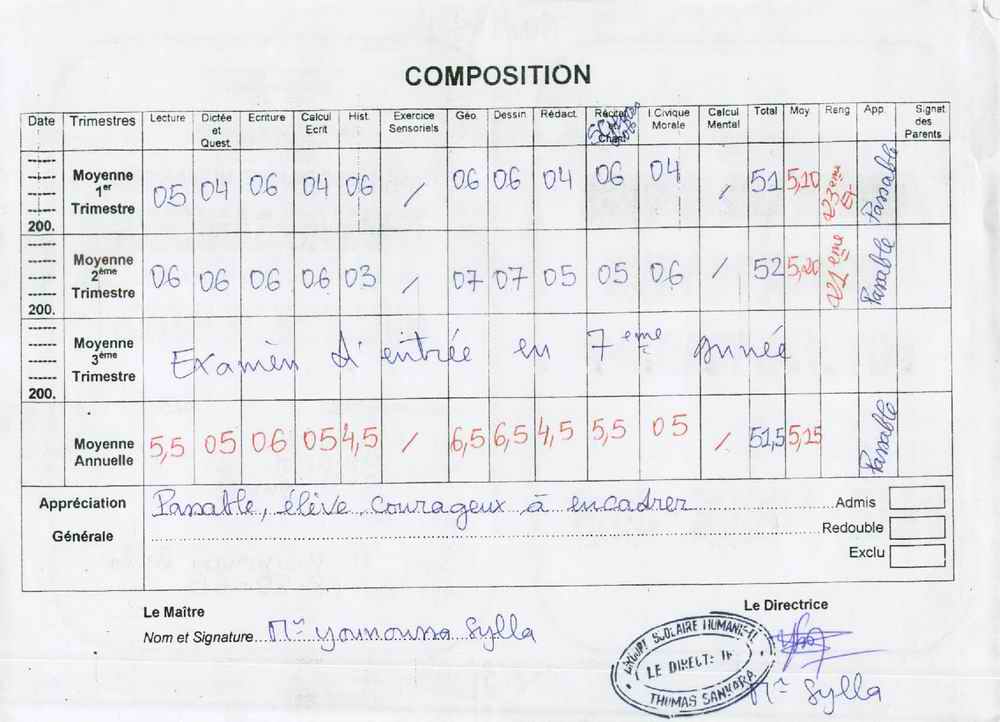 COMPOSITION
Date Trimestres Lecture Dictée et Quest. Ecriture Calcul Ecrit Hist. Exercice Sensoriels Géo. Dessin Rédact. I.Civique Morale Calcul Mental Total Moy Rang App. Signat des Parents
200. Moyenne 1er Trimestre 05 04 06 04 06 / 06 06 04 06 04 / 51 5,10 23ème Passable
200. Moyenne 2ème Trimestre 06 06 06 06 03 / 07 07 05 05 06 / 52 5,20 21ème Passable
200. Moyenne 3ème Trimestre Examen d'entrée en 7ème Année
Moyenne Annuelle 5,5 05 06 05 4,5 / 6,5 6,5 4,5 5,5 05 / 51,5 5,15 Passable
Appréciation Générale Passable, élève courageux à encadrer
Admis
Redouble
Exclu
Le Maître
Nom et Signature Mr Younoussa Sylla
Le Directrice
GROUPE SCOLAIRE
LE DIRECTEUR
THOMAS SANKARA
Mr Sylla